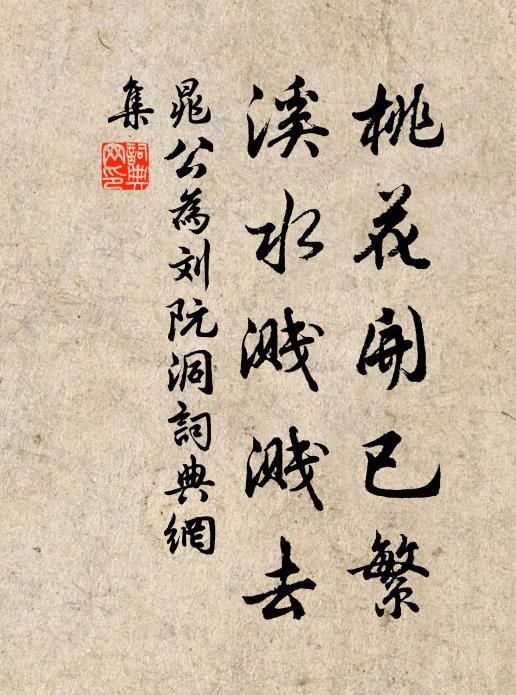 桃花開已繁
溪水濺濺去
晁公為刘阮洞詞典網
集
詞典網印